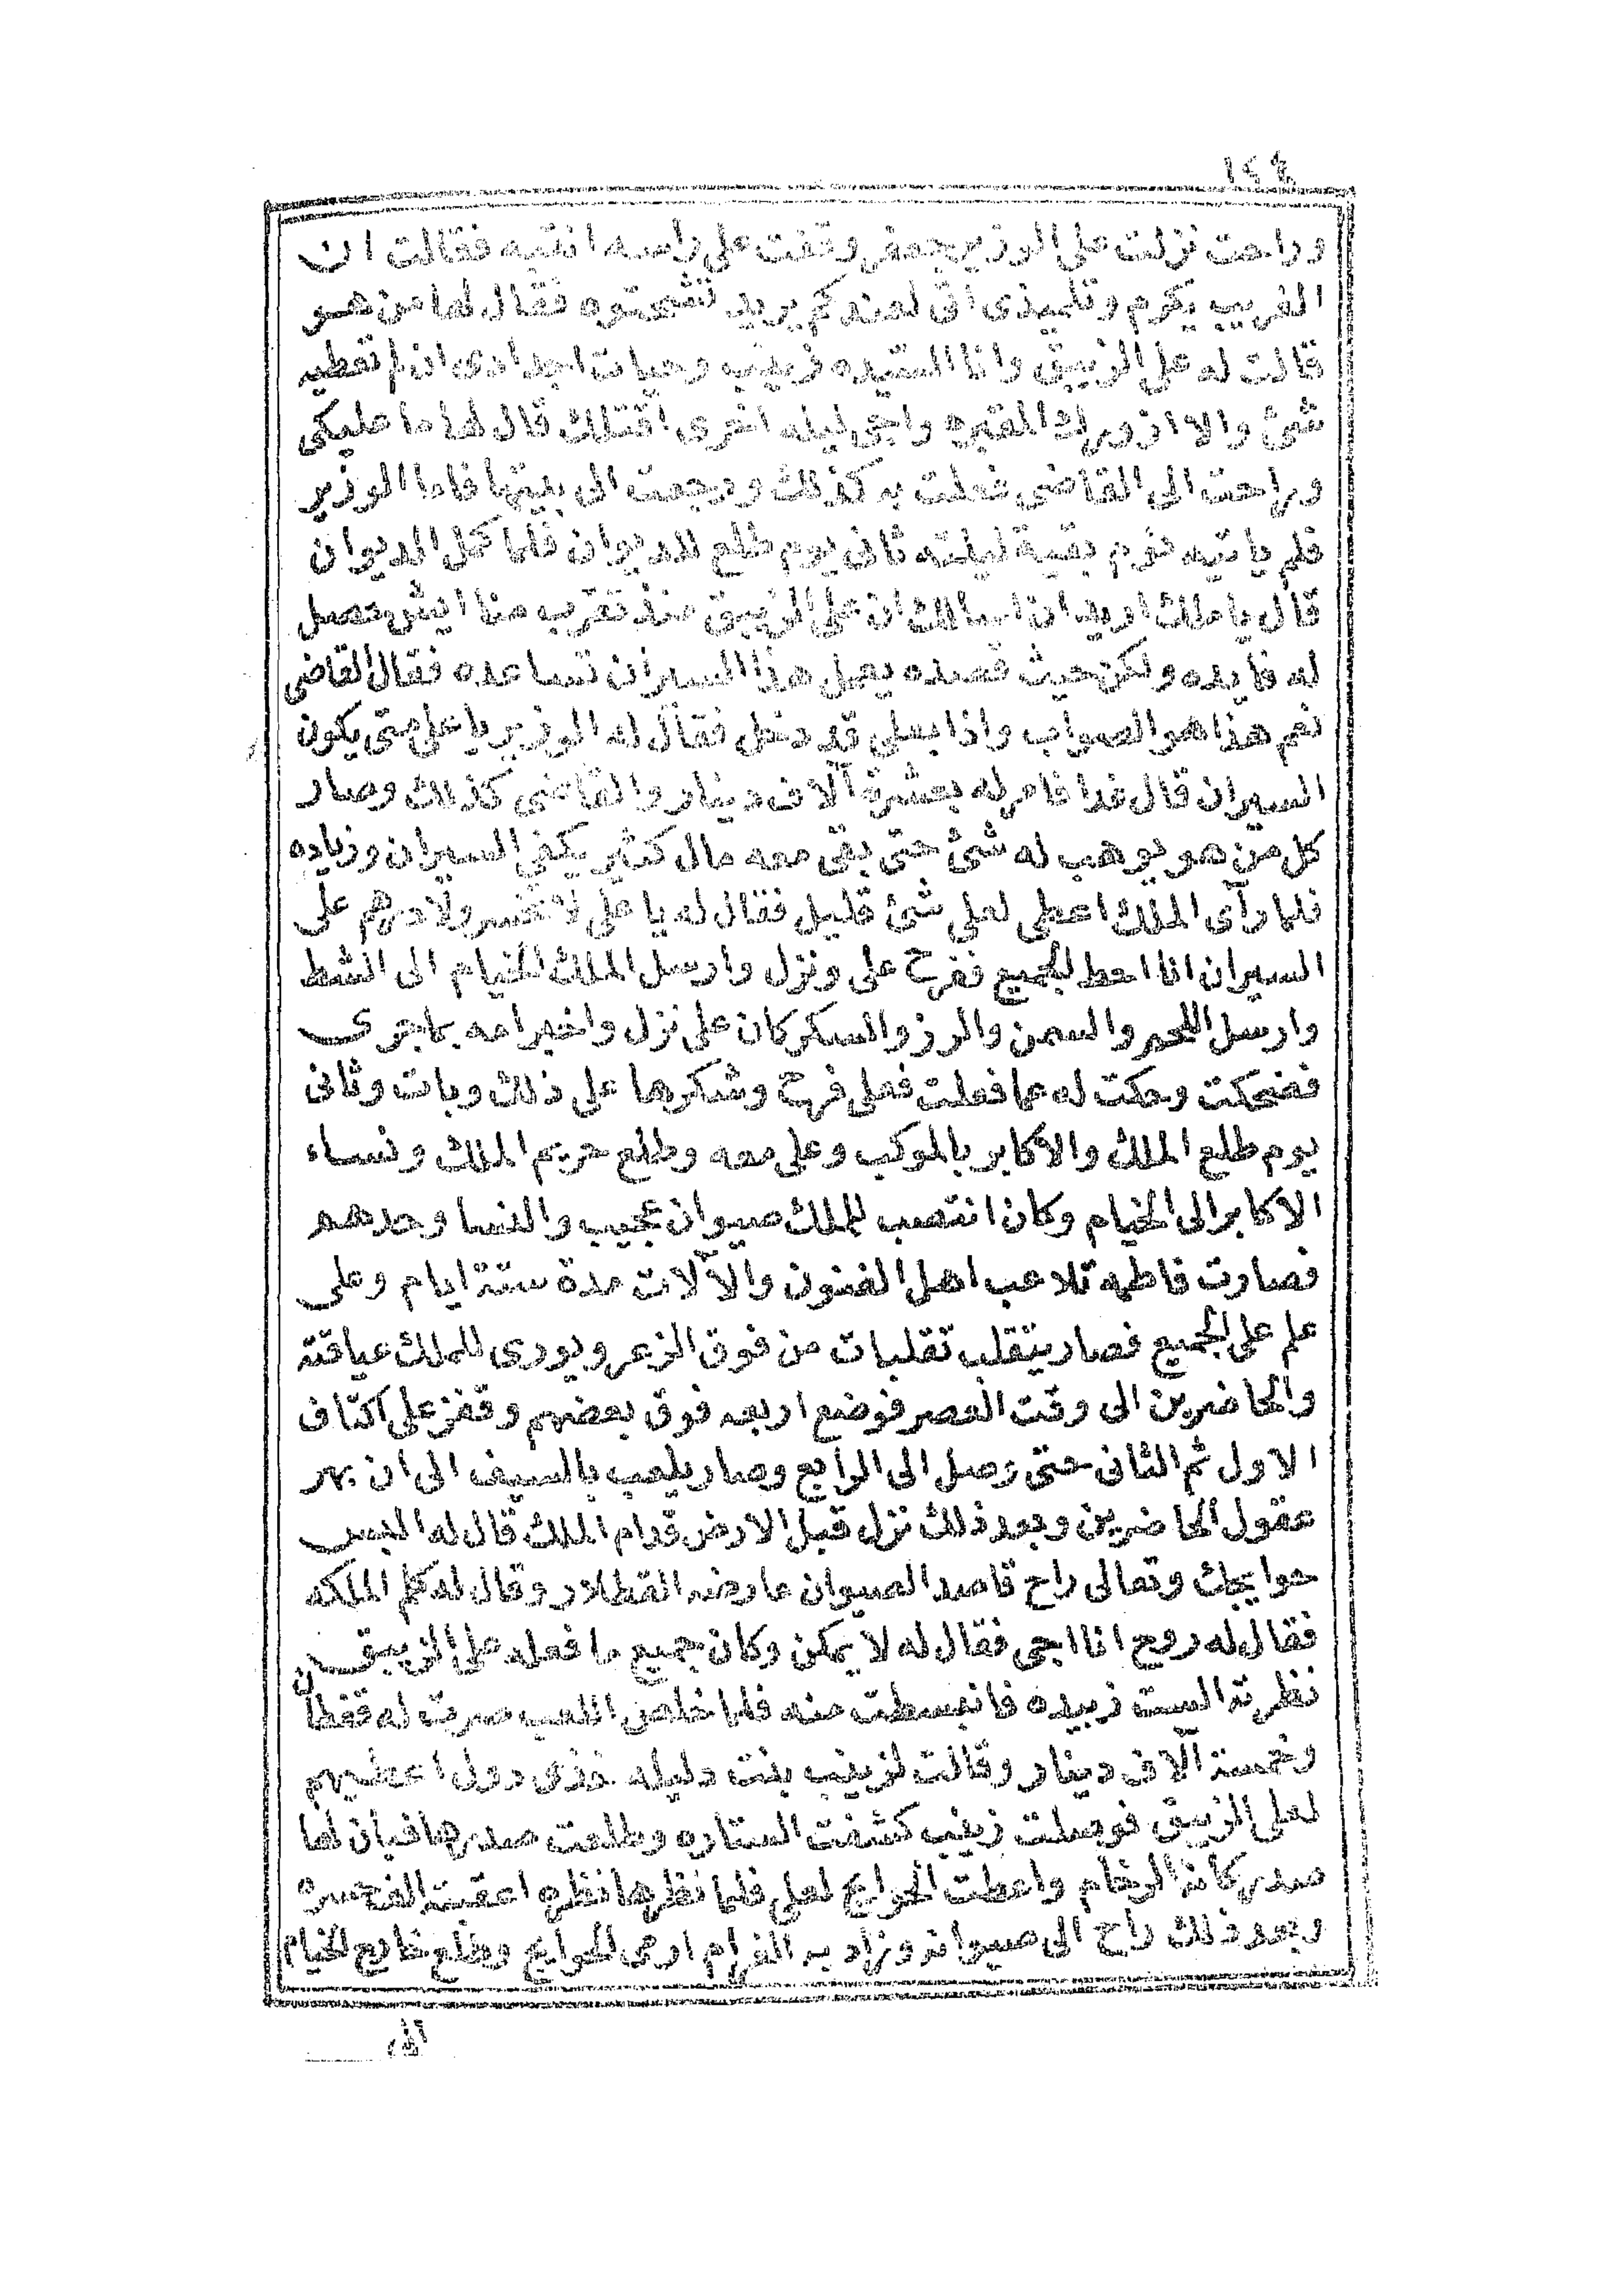 ١٤٤
وراحت نزلت على الوزير جعفر وقفت على راسه انتبه فقالت ان
الغريب يكرم وتلميذى اتى لعندكم يريد تشحتوه فقال لها من هو
قالت له على الزيبق وانا الستيده زينب وحيات اجدادى ان لم تعطيه
شئ والا ازورك المقبره واجى ليله اخرى اقتلك قال لها ما عليكى
وراحت الى القاضى فعلت به كذلك ورجعت الى بيتها فاما الوزير
فلم ياتيه نوم بقية ليلته ثانى يوم طلع للديوان فلما كمل الديوان
قال يا ملك اريد ان اسالك ان على الزيبق منذ تقرب منا ايش حصل
له فايده ولكن حيث قصده يعمل هذا السيران تساعده فقال القاضى
نعم هذا هو الصواب واذا بعلى قد دخل فقال له الوزير يا على متى يكون
السيران قال غدا فامر له بعشرة آلاف دينار والقاضى كذلك وصار
كل من هو يوهب له شئ حتى بقى معه مال كثير يكفى السيران وزياده
فلما رآى الملك اعطى لعلى شئ قليل فقال له يا على لا تخسر ولا درهم على
السيران انا احط الجميع ففرح على ونزل وارسل الملك الخيام الى الشط
وارسل اللحم والسمن والرز والسكر كان على نزل واخبر امه بماجرى
فضحكت وحكت له عما فعلت فعلى فرح وشكرها على ذلك وبات وثانى
يوم طلع الملك والاكابر بالموكب وعلى معه وطلع حريم الملك ونساء
الاكابر الى الخيام وكان انتصب للملك صيوان عجيب والنسا وحدهم
فصارت فاطمه تلاعب اهل الفنون والآلات مدة ستة ايام وعلى
علم على الجميع فصار يتقلب تقلبات من فوق الزعر ويورى للملك عياقته
والحاضرين الى وقت العصر فوضع اربعه فوق بعضهم وقفز على اكتاف
الاول ثم الثانى حتى وصل الى الرابع وصار يلعب بالسيف الى ان بهر
عقول الحاضرين وبعد ذلك نزل قبل الارض قدام الملك قال له البس
حوايجك وتعالى راح قاصد الصيوان عارضه القظلار وقال له كلم الملكه
فقال له روح انا اجى فقال له لا يمكن وكان جميع ما فعله على الزيبق
نظرته الست زبيده فانبسطت منه فلما خلص اللعب صرت له قفطان
وخمسة آلاف دينار وقالت لزينب بنت دليله خذى دول اعطيهم
لعلى الزيبق فوصلت زينب كشفت الستاره وطلعت صدرها فبان لها
صدر كانه الرخام واعطت الحوايج لعلى فلما نظرها نظره اعقبته الف حسره
وبعد ذلك راح الى صيوانه وزاد به الغرام ارمى الحوايج وطلع خارج الخيام